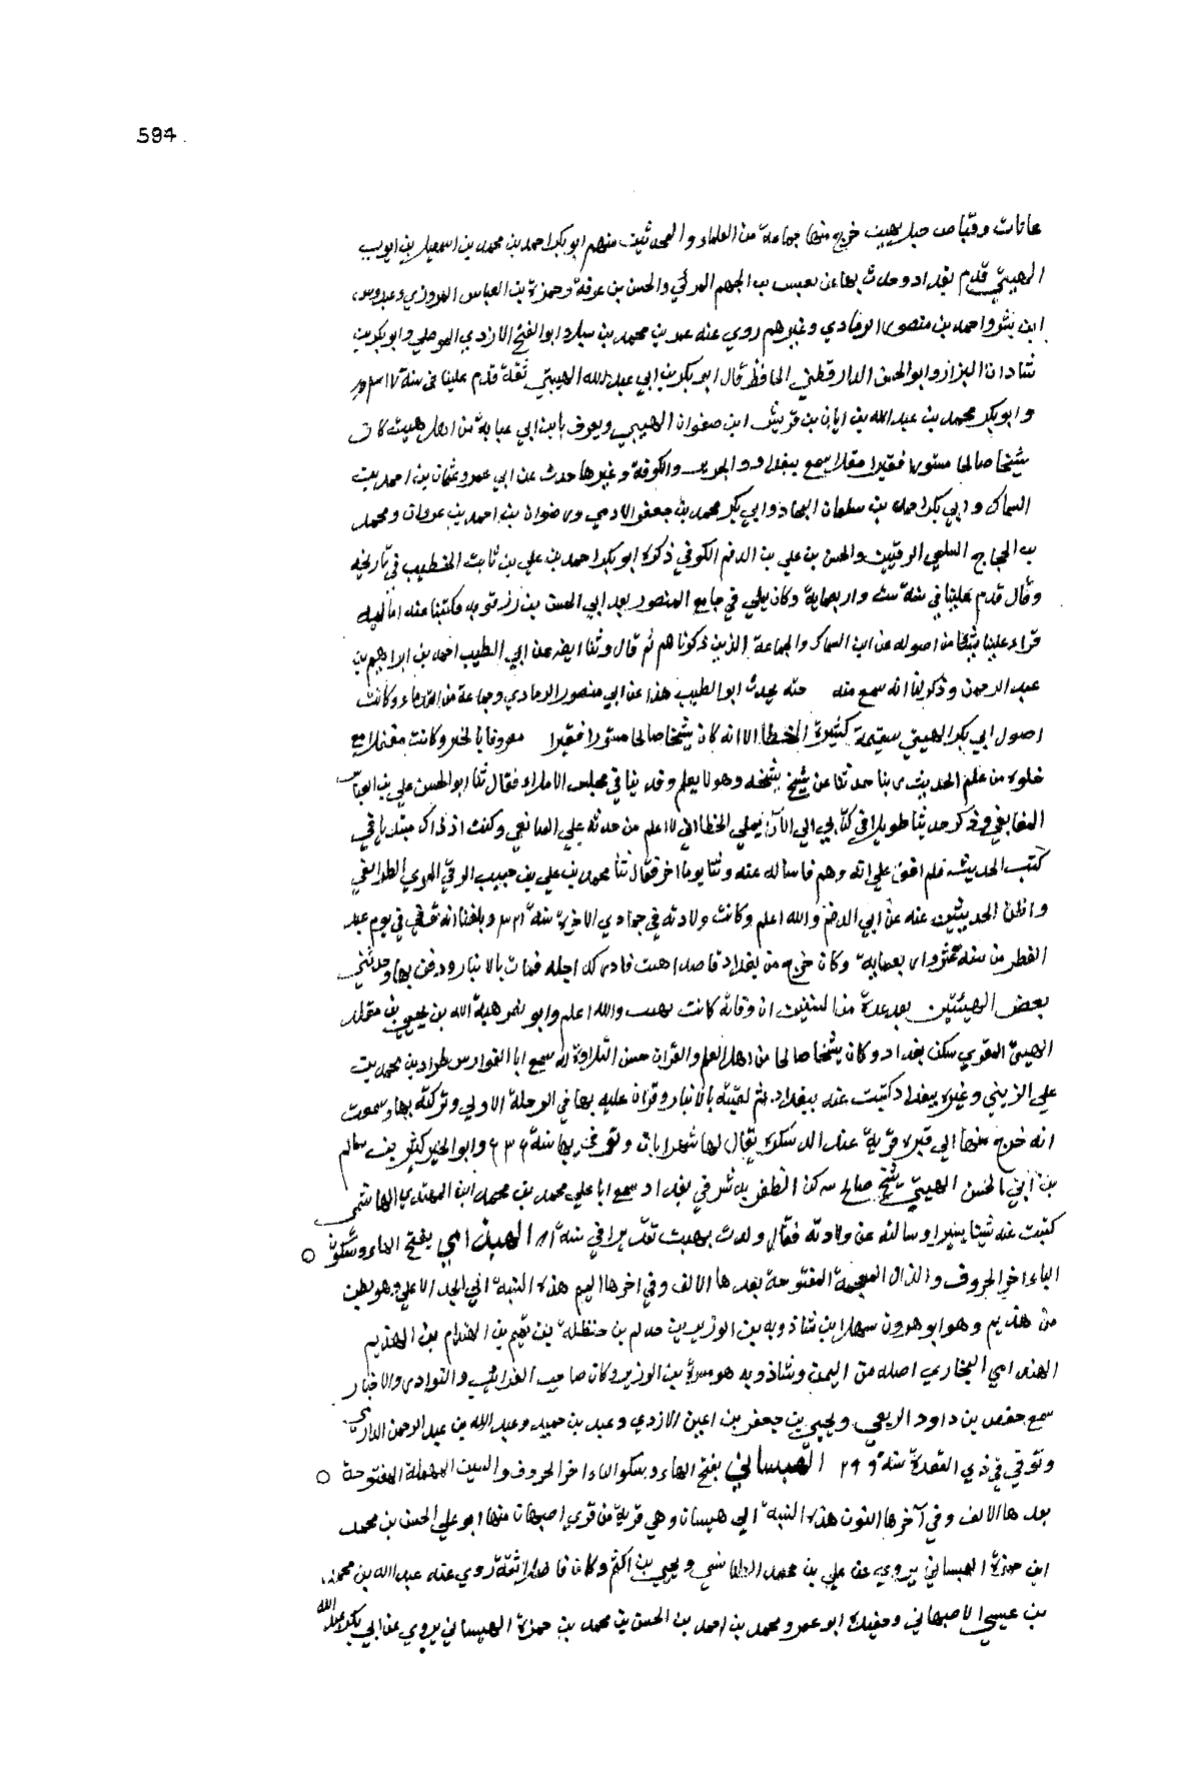 594
عانات وقبا من حبل بهيت خرج منها جماعة من العلماء والمحدثين منهم ابو بكر احمد بن محمد بن اسمعيل بن ايوب
الهيتي قدم بغداد وحدث بها عن يعيش بن الجهم والحسن بن عرفة وحمزة بن العباس المروزي وعبدوس
ابن بشر واحمد بن منصور الرمادي وغيرهم روي عنه عمر بن محمد بن ابو الفتح الازدي الموصلي وابو بكر بن
شاذان البزاز وابو الحسن الدارقطني الحافظ قال ابو بكر بن ابي عبد الله الهيتي ثقة قدم علينا في سنة
وابو بكر محمد بن عبد الله بن ابان بن قريش ابن صفوان الهيتي ويعرف بابن ابي عباية من اهل هيت كان
شيخا صالحا مستورا فقيرا مقلا سمع ببغداد و والكوفة وغيرها حدث عن ابي عمرو عثمان بن احمد بن
السماك وابي بكر احمد بن سلمان النجاد وابي بكر محمد بن جعفر الادمي ورضوان بن احمد بن غزوان ومحمد
بن الحجاج السلمي الرقيين والحسن بن علي بن الكوفي ذكره ابو بكر احمد بن علي بن ثابت الخطيب في تاريخه
وقال قدم علينا في سنة ست واربعماية وكان يملي في جامع المنصور بعد ابي الحسن بن رزقويه فكتبنا عنه اماليه
قراء علينا شيخا من اصوله عن ابن السماك والجماعة الذين ذكرناهم ثم قال وثنا ايضا عن ابي الطيب احمد بن ابراهيم بن
عبد الرحمن وذكر لنا انه سمع منه يحدث ابو الطيب هذا عن ابي منصور الرمادي وجماعة من القدماء وكانت
اصول ابي بكر الهيتي سقيمة كثيرة الخطأ الا انه كان شيخا صالحا مستورا فقيرا معروفا بالخير وكانت مغفلا مع
خلوه من علم الحديث ربنا حدثنا عن شيخ شيخه وهو لا يعلم وقد ينا في مجلس الاملاء فقال ثنا ابو الحسن علي بن العباس
المغابغي وذكر حديثا طويلا في كتابي الي الآن يملي الخطا اني لا اعلم من حدثه علي الصانعي وكنت اذ ذاك مبتديا في
كتب الحديث فلم افق علي انه وهم فاساله عنه وثنا يوما اخر فقال ثنا محمد بن علي بن حبيب الرقي المري الطرايفي
واظن الحديثين عنه عن ابي والله اعلم وكانت ولادته في جمادي الاخرة سنة ٣٢١ وبلغنا انه توفي في يوم عيد
الفطر من سنة عشر واربعماية وكان خرج من بغداد قاصدا هيت فادركه اجله فمات بالانبار ودفن بها وحدثني
بعض الهيتيين بعد عدة من السنين ان وفاته كانت بهيت والله اعلم وابو نصر هبة الله بن يحيى بن مقلد
الهيتي المقري سكن بغداد وكان شيخا صالحا من اهل العلم والقران حسن التلاوة له سمع ابا الفوارس طراد بن محمد بن
علي الزينبي وغيره ببغداد كتبت عنه ببغداد. ثم لقيته بالانبار وقرات عليه بها في الرحلة الاولي وتركته بها وسمعت
انه خرج منها الي قرية عند الدسكرة يقال لها شهرابان وتوفي بها سنة ٥٣٦ وابو الخير كثير بن سالم
بن ابي الحسن الهيتي شيخ صالح سكن الظفرية شرقي بغداد سمع ابا علي محمد بن محمد ابن المهتدي الهاشمي
كتبت عنه شيئا يسيرا وسالته عن ولادته فقال ولدت بهيت تقديرا في سنة الهيذامي بفتح الهاء وسكون ○
الياء اخر الحروف والذال المعجمة المفتوحة بعدها الالف وفي اخرها الميم هذه النسبة الي الجد الاعلي وهو بطن
من هذيم وهو ابو هرون سهل بن شاذويه بن الوزير بن حذلم بن حنظلة بن تميم بن الهذام بن الهذيم
الهذامي البخاري اصله من اليمن وشاذويه هو بن الوزير وكان صاحب الغرائب والنوادر والاخبار
سمع حفص بن داود الربعي ويحيي بن جعفر بن اعين الازدي وعبد بن حميد وعبد الله بن عبد الرحمن الدارمي
وتوفي في ذي القعدة سنة ٢٩٩ الهيساني بفتح الهاء وسكو الياء اخر الحروف والسين المهملة المفتوحة ○
بعدها الالف وفي آخرها النون هذه النسبة الي هيسان وهي قرية من قري اصبهان منها ابو علي الحسن بن محمد
ابن حمزة الهيساني يروي عن علي بن محمد الطنافسي ويحيي بن اكثم وكان فاضلا ثقة روي عنه عبد الله بن محمد
بن عيسي الاصبهاني وحفيده ابو عمرو محمد بن احمد بن الحسن بن محمد بن حمزة الهيساني يروي عن ابي بكر عبد الله